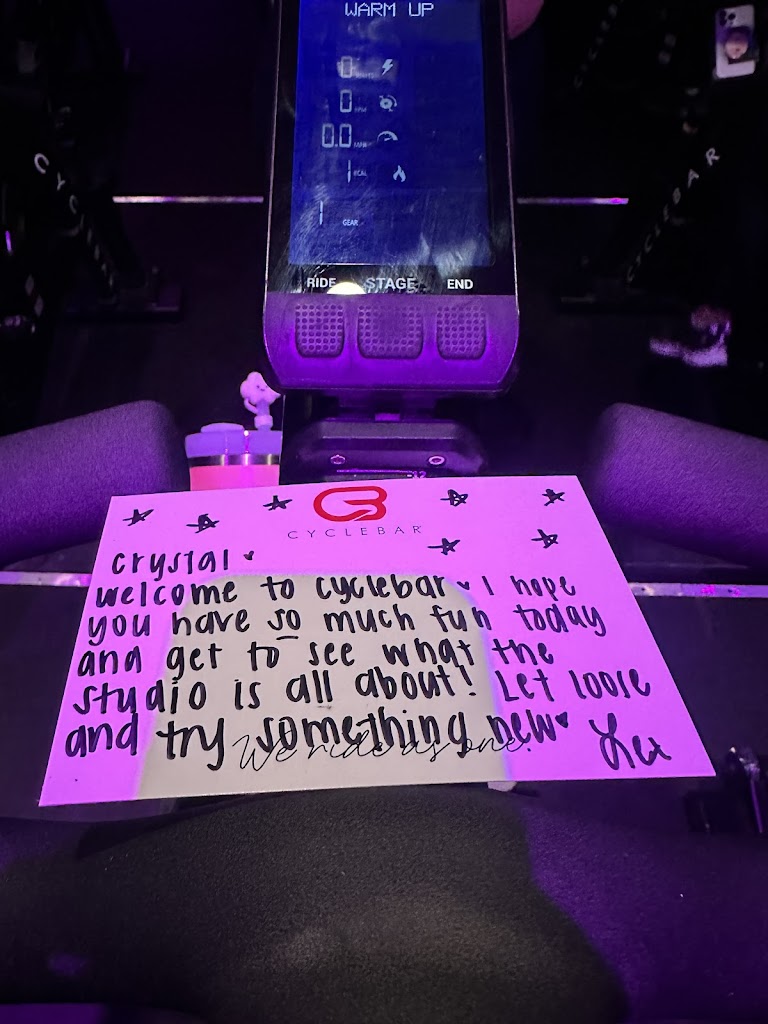 WARM UP
0 WATTS
0 RPM
0.0 MAX
1 KCAL
1 GEAR
RIDE STAGE END
CYCLEBAR
CYCLEBAR
CB
CYCLEBAR
crystal
welcome to cyclebar I hope
you have so much fun today
and get to see what the
studio is all about! Let loose
and try something new
We ride as one.
Lex